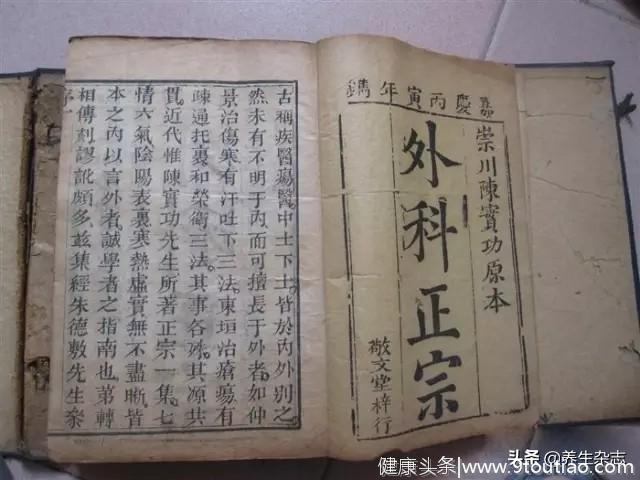 嘉慶丙寅年鐫
崇川陳實功原本
外科正宗
敬文堂梓行
古稱疾醫瘍醫中士下士皆於內外別之
然未有不明于內而可擅長于外者如仲
景治傷寒有汗吐下三法東垣治瘡瘍有
疎通托裏和榮衛三法其事各殊其源共
貫近代惟陳實功先生所著正宗一集七
情六氣陰陽表裏寒熱虛實無不盡晰皆
本之內以言外者誠學者之指南也第轉
相傳刻謬訛頗多玆集經朱德敷先生叅
头条 @养生杂志
健康头条 www.9toutiao.com